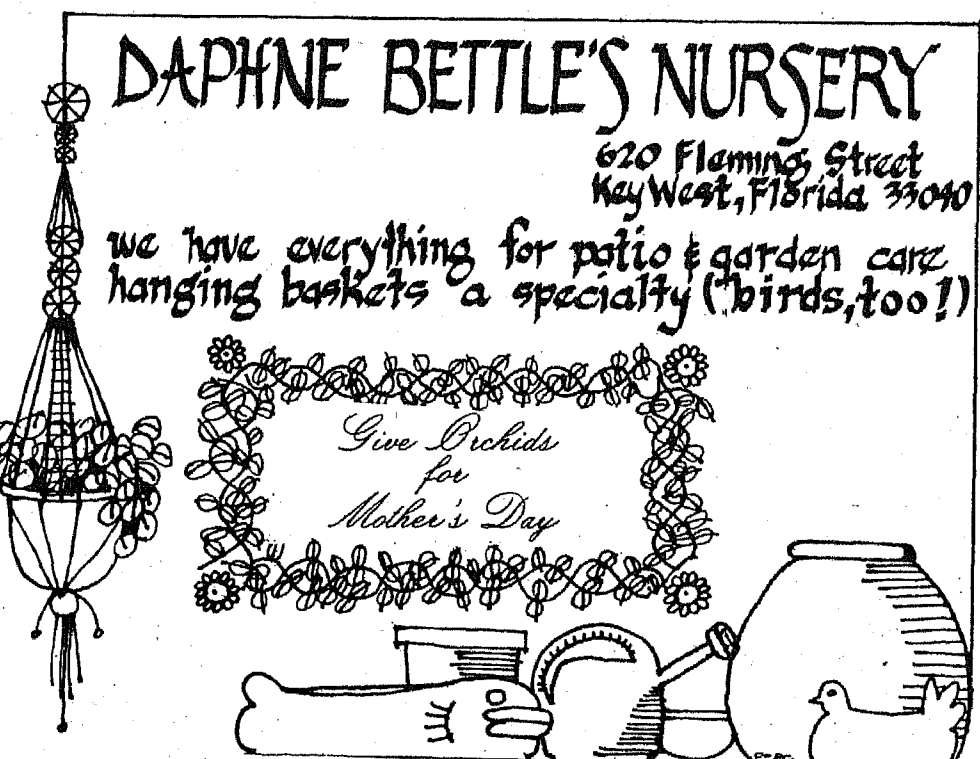 DAPHNE BETTLE'S NURSERY
620 Fleming Street
Key West, Florida 33040
we have everything for patio & garden care
hanging baskets a specialty (birds, too!)
Give Orchids
for
Mother's Day